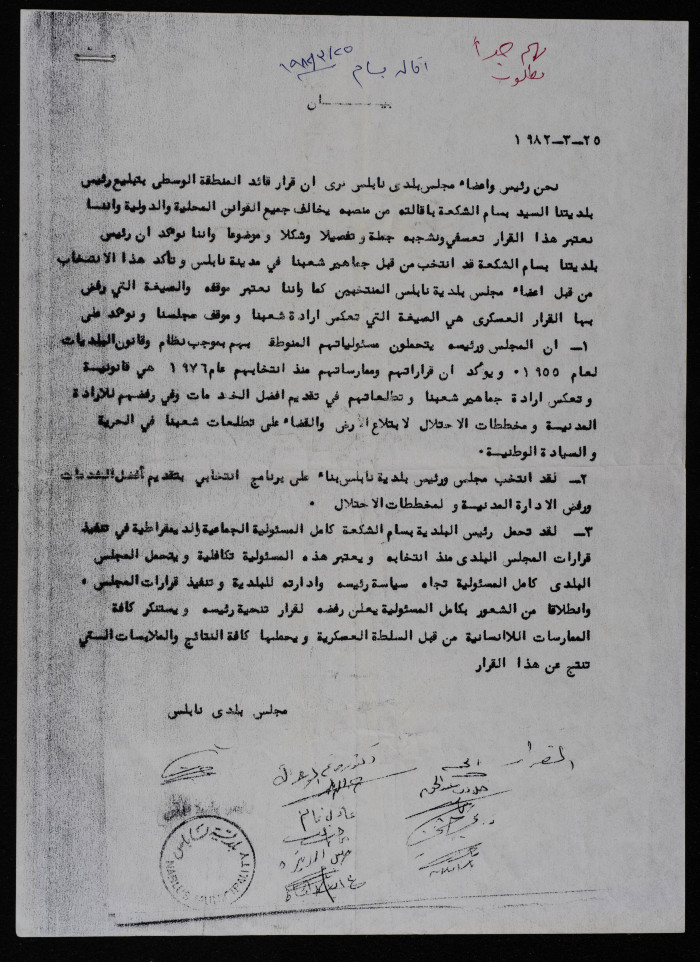 هام جداً
مطلوب
اقالة بسام ١٩٨٢/٣/٢٥
بيـــــــان
٢٥ــ٣ــ١٩٨٢
نحن رئيس واعضاء مجلس بلدى نابلس نرى ان قرار قائد المنطقة الوسطى بتبليغ رئيس
بلديتنا السيد بسام الشكعة باقالته من منصبه يخالف جميع القوانن المحلية والدولية واننا
نعتبر هذا القرار تعسفي ونشجبه جملة وتفصيلا وشكلا وموضوعا واننا نؤكد ان رئيس
بلديتنا بسام الشكعة قد انتخب من قبل جماهير شعبنا في مدينة نابلس وتأكد هذا الانتخاب
من قبل اعضاء مجلس بلدية نابلس المنتخبين كما واننا نعتبر موقفه والصيغة التي رفض
بها القرار العسكرى هي الصيغة التي تعكس ارادة شعبنا وموقف مجلسنا ونؤكد على
١ــ ان المجلس ورئيسه يتحملون مسئولياتهم المنوطة بهم بموجب نظام وقانون البلديات
لعام ١٩٥٥ ٠ ويؤكد ان قراراتهم وممارساتهم منذ انتخابهم عام ١٩٧٦ هي قانونية
وتعكس ارادة جماهير شعبنا وتطلعاتهم في تقديم افضل الخدمات وفي رفضهم للارادة
المدنية ومخططات الاحتلال لابتلاع الارض والقضاء على تطلعات شعبنا في الحرية
والسيادة الوطنية٠
٢ــ لقد انتخب مجلس ورئيس بلدية نابلس بناء على برنامج انتخابي بتقديم أفضل الخدمات
ورفض الادارة المدنية ولمخططات الاحتلال ٠
٣ــ لقد تحمل رئيس البلدية بسام الشكعة كامل المسئولية الجماعية والديمقراطية في تنفيذ
قرارات المجلس البلدى منذ انتخابه ويعتبر هذه المسئولية تكافلية ويتحمل المجلس
البلدى كامل المسئولية تجاه سياسة رئيسه وادارته للبلدية وتنفيذ قرارات المجلس ٠
وانطلاقا من الشعور بكامل المسئولية يعلن رفضه لقرار تنحية رئيسه ويستنكر كافة
الممارسات اللاانسانية من قبل السلطة العسكرية ويحملها كافة النتائج والملابسات التي
تنتج عن هذا القرار
مجلس بلدى نابلس
بلدية نابلس
NABLUS MUNICIPALITY